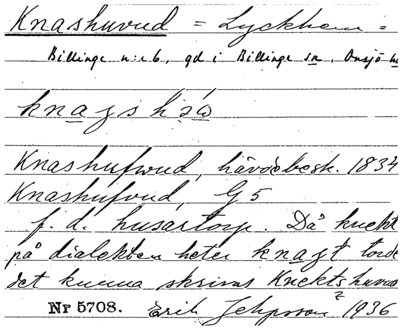 Knashuvud = Lyckhem =
Billinge n:r 6, gd i Billinge sn, Onsjö h
knags
Knashufwud, hävdebesk. 1834
Knashufvud, G 5
f. d. husartorp. Då knekt
på dialekten heter knagt torde
det kunna skrivas Knektshuvud
Nr 5708. Erik 1936